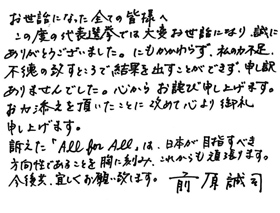 お世話になった全ての皆様へ
この度の代表選挙では大変お世話になり、誠に
ありがとうございました。にもかかわらず、私の力不足、
不徳の致すところで結果を出すことができず、申し訳
ありませんでした。心からお詫び申し上げます。
お力添えを頂いたことに改めて心より御礼
申し上げます。
訴えた「All for All」は、日本が目指すべき
方向性であることを胸に刻み、これからも頑張ります。
今後共、宜しくお願い致します。 前原誠司